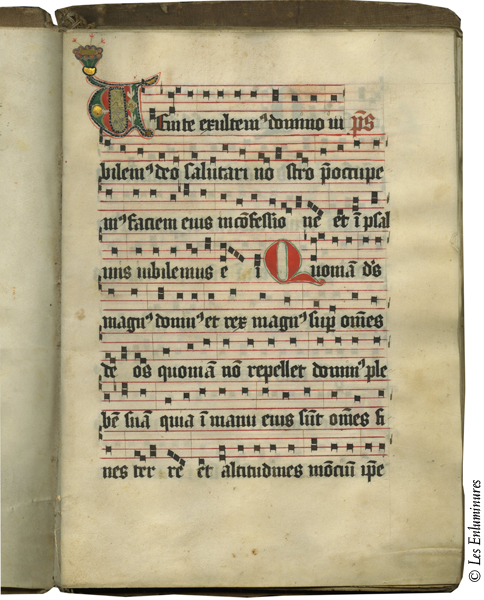 Uenite exultem⁹ domino iu p̄s
bilem⁹ deo salutari no stro p̄occupe
m⁹ faciem eius in cōfessio ne et ī psal
mis iubilemus e i Quoniā d̄s
magn⁹ domin⁹ et rex magn⁹ sup̄ om̄es
de os quoniā nō repellet domin⁹ ple
bē suā quia ī manu eius sūt om̄es fi
nes ter re et altitudines mōciū ip̄e
© Les Enluminures